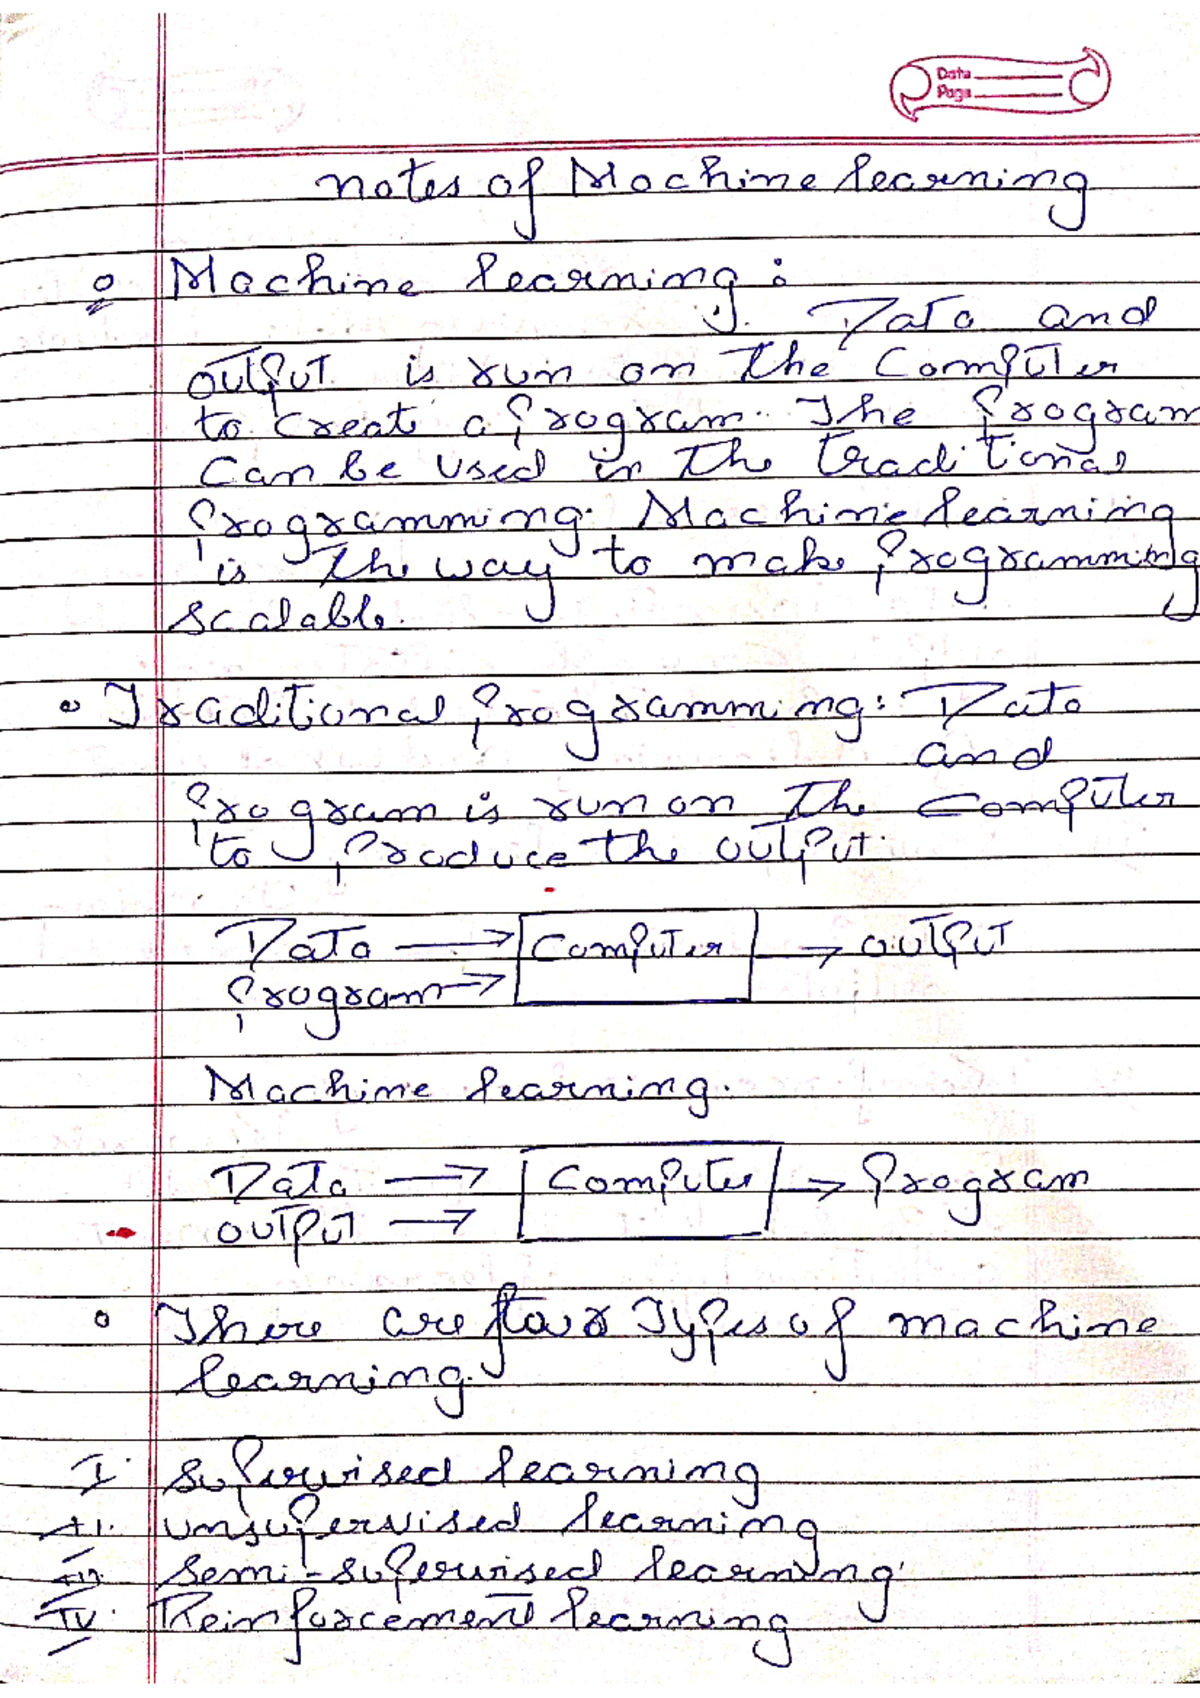 Data
Page
Notes of Machine learning
Machine learning:
Data and
output is run on the Computer
to Create a program. The program
Can be used in the traditional
programming. Machine learning
is the way to make programming
scalable.
Traditional programming: Data
and
program is run on the Computer
to produce the output.
Data → Computer → output
program →
Machine learning.
Data → Computer → Program
output →
There are four Types of machine
learning.
I. Supervised learning
II. unsupervised learning
III. Semi-supervised learning.
IV. Reinforcement learning